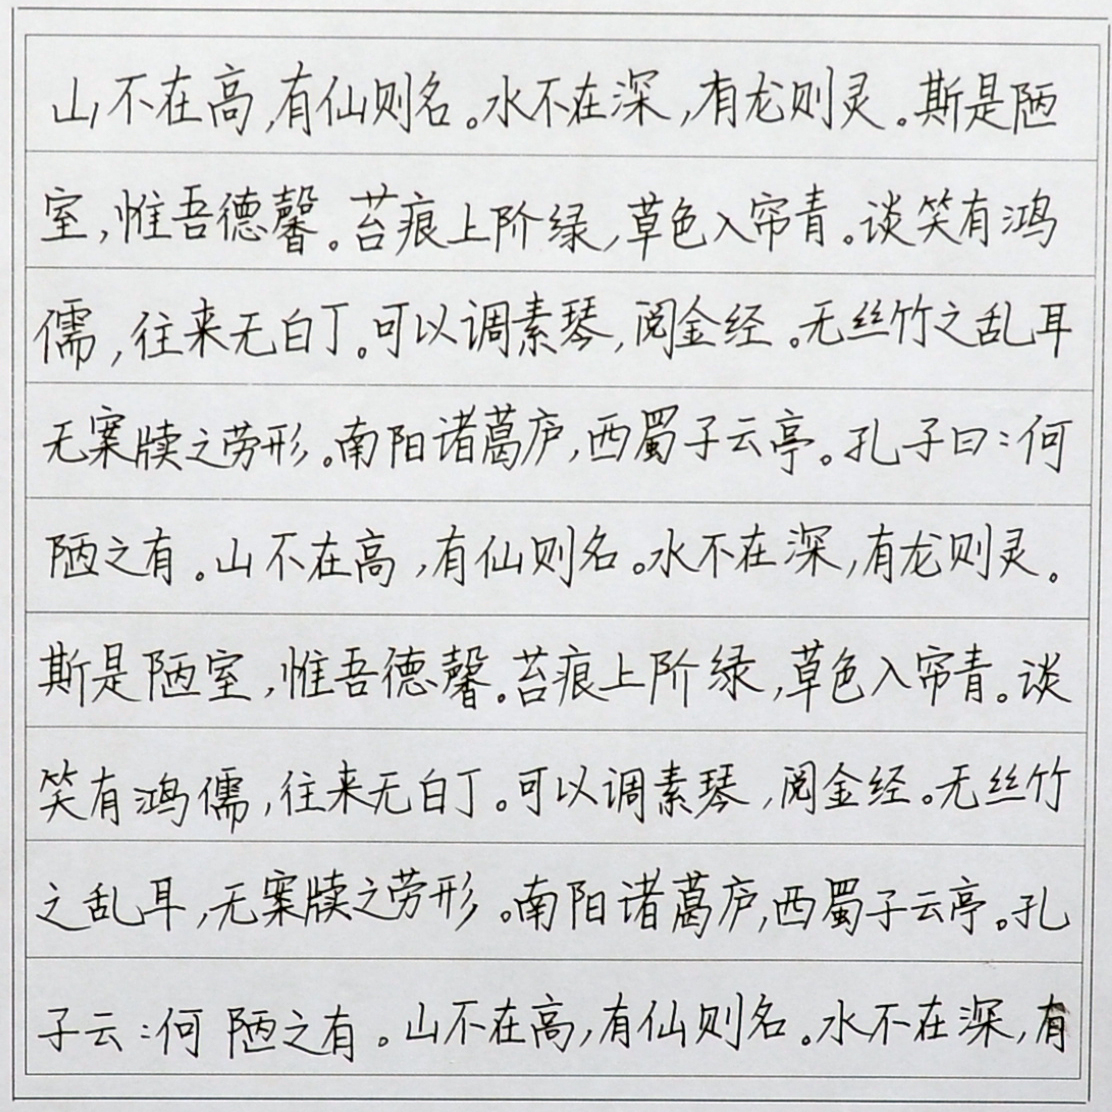 山不在高,有仙则名。水不在深,有龙则灵。斯是陋
室,惟吾德馨。苔痕上阶绿,草色入帘青。谈笑有鸿
儒,往来无白丁。可以调素琴,阅金经。无丝竹之乱耳
无案牍之劳形。南阳诸葛庐,西蜀子云亭。孔子曰:何
陋之有。山不在高,有仙则名。水不在深,有龙则灵。
斯是陋室,惟吾德馨。苔痕上阶绿,草色入帘青。谈
笑有鸿儒,往来无白丁。可以调素琴,阅金经。无丝竹
之乱耳,无案牍之劳形。南阳诸葛庐,西蜀子云亭。孔
子云:何陋之有。山不在高,有仙则名。水不在深,有